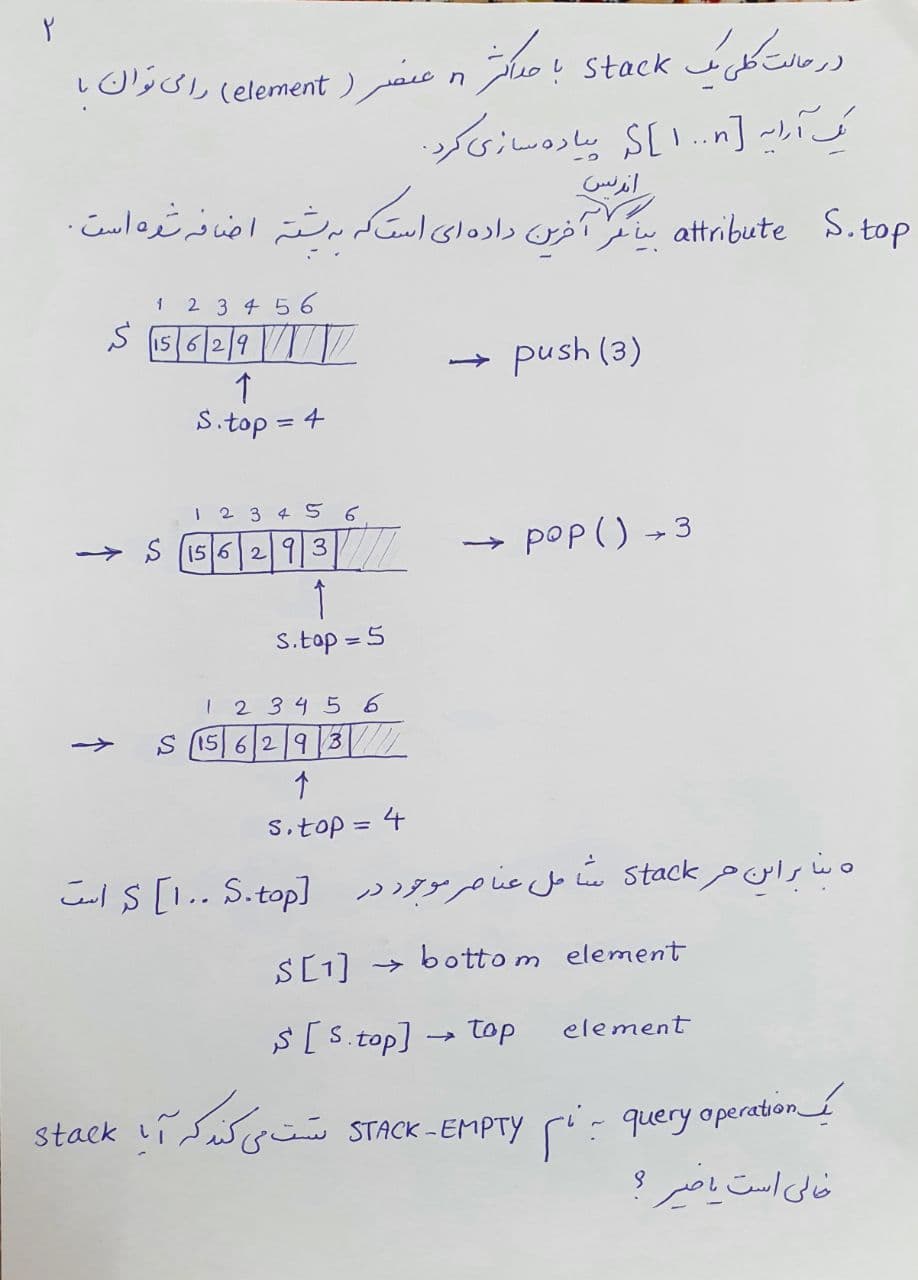 ۲
در حالت کلی یک stack با حداکثر n عنصر (element) را می توان با
یک آرایه S[1..n] پیاده سازی کرد.
اندیس
S.top attribute بیانگر آخرین داده ای است که به پشته اضافه شده است.
1 2 3 4 5 6
S 15 6 2 9 → push(3)
↑
S.top = 4
1 2 3 4 5 6
→ S 15 6 2 9 3 → pop() → 3
↑
S.top = 5
1 2 3 4 5 6
→ S 15 6 2 9 3
↑
S.top = 4
بنابراین هر stack شامل عناصر موجود در S[1.. S.top] است
S[1] → bottom element
S[S.top] → top element
یک query operation به نام STACK-EMPTY تست می کند که آیا stack
خالی است یا خیر ؟